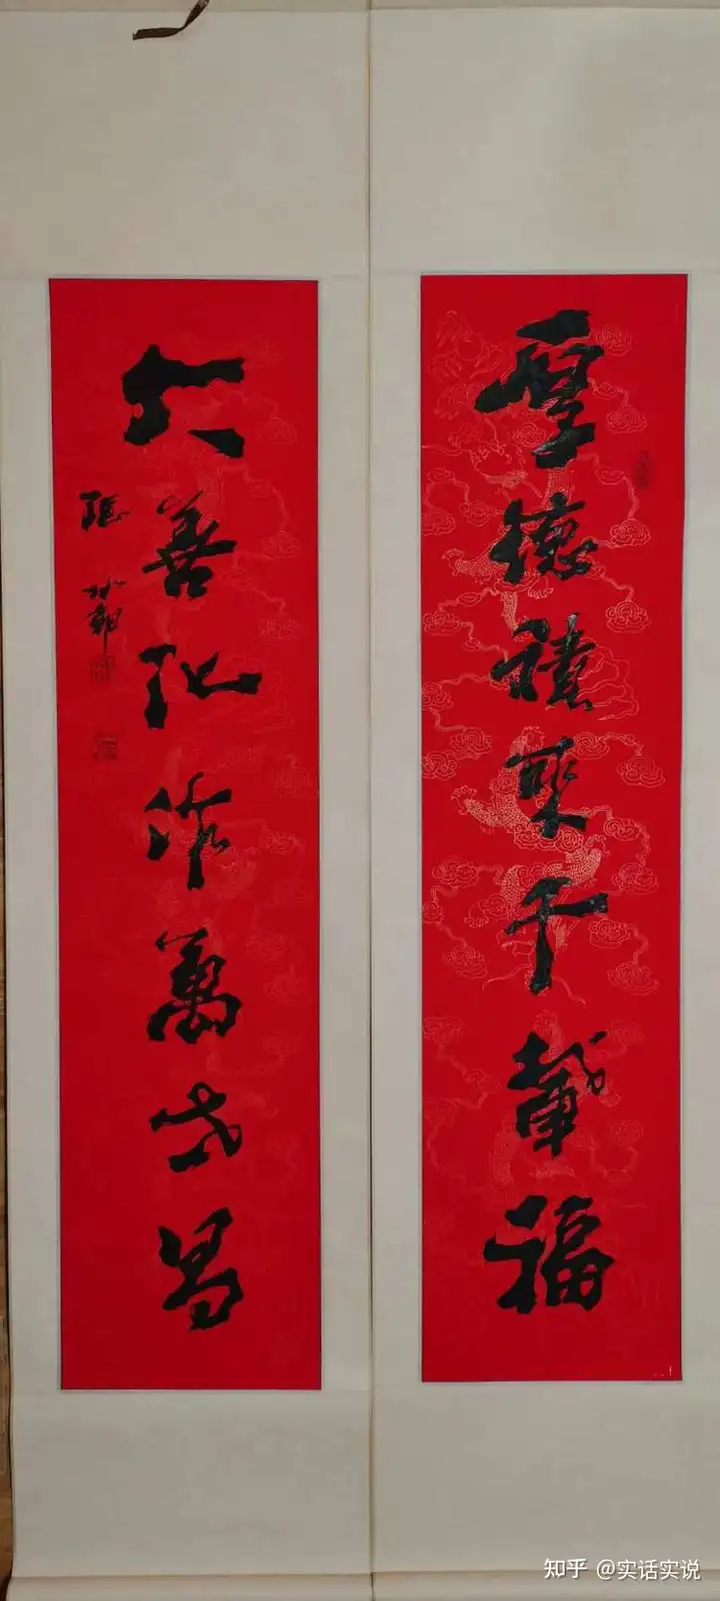 厚德積聚千載福
大善化作萬世昌
知乎 @实话实说